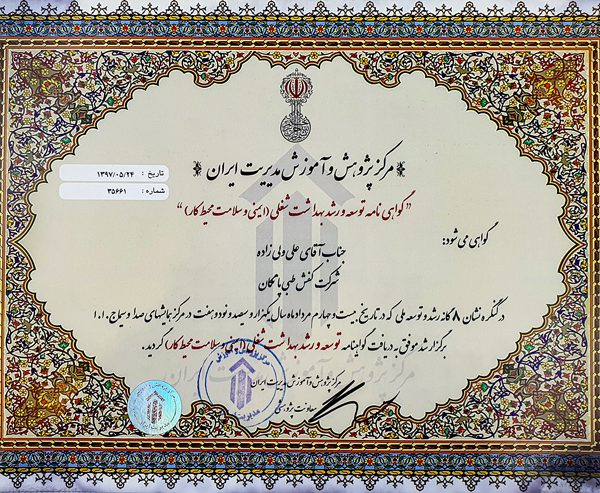 مرکز پژوهش و آموزش مدیریت ایران
تاریخ : ۱۳۹۷/۰۵/۲۴
شماره : ۳۵۶۶۱
"گواهی نامه توسعه و رشد بهداشت شغلی (ایمنی و سلامت محیط کار)"
گواهی می شود:
جناب آقای علی ولی زاده
شرکت کفش طبی پامکان
در کنگره نشان ۸ گانه رشد و توسعه ملی که در تاریخ بیست و چهارم مرداد ماه سال یکهزار و سیصد و نود و هفت در مرکز همایشهای صدا و سیمای ج.ا.ا
برگزار شد موفق به دریافت گواهینامه توسعه و رشد بهداشت شغلی (ایمنی و سلامت محیط کار) گردید.
مرکز پژوهش و آموزش مدیریت ایران
معاونت پژوهشی